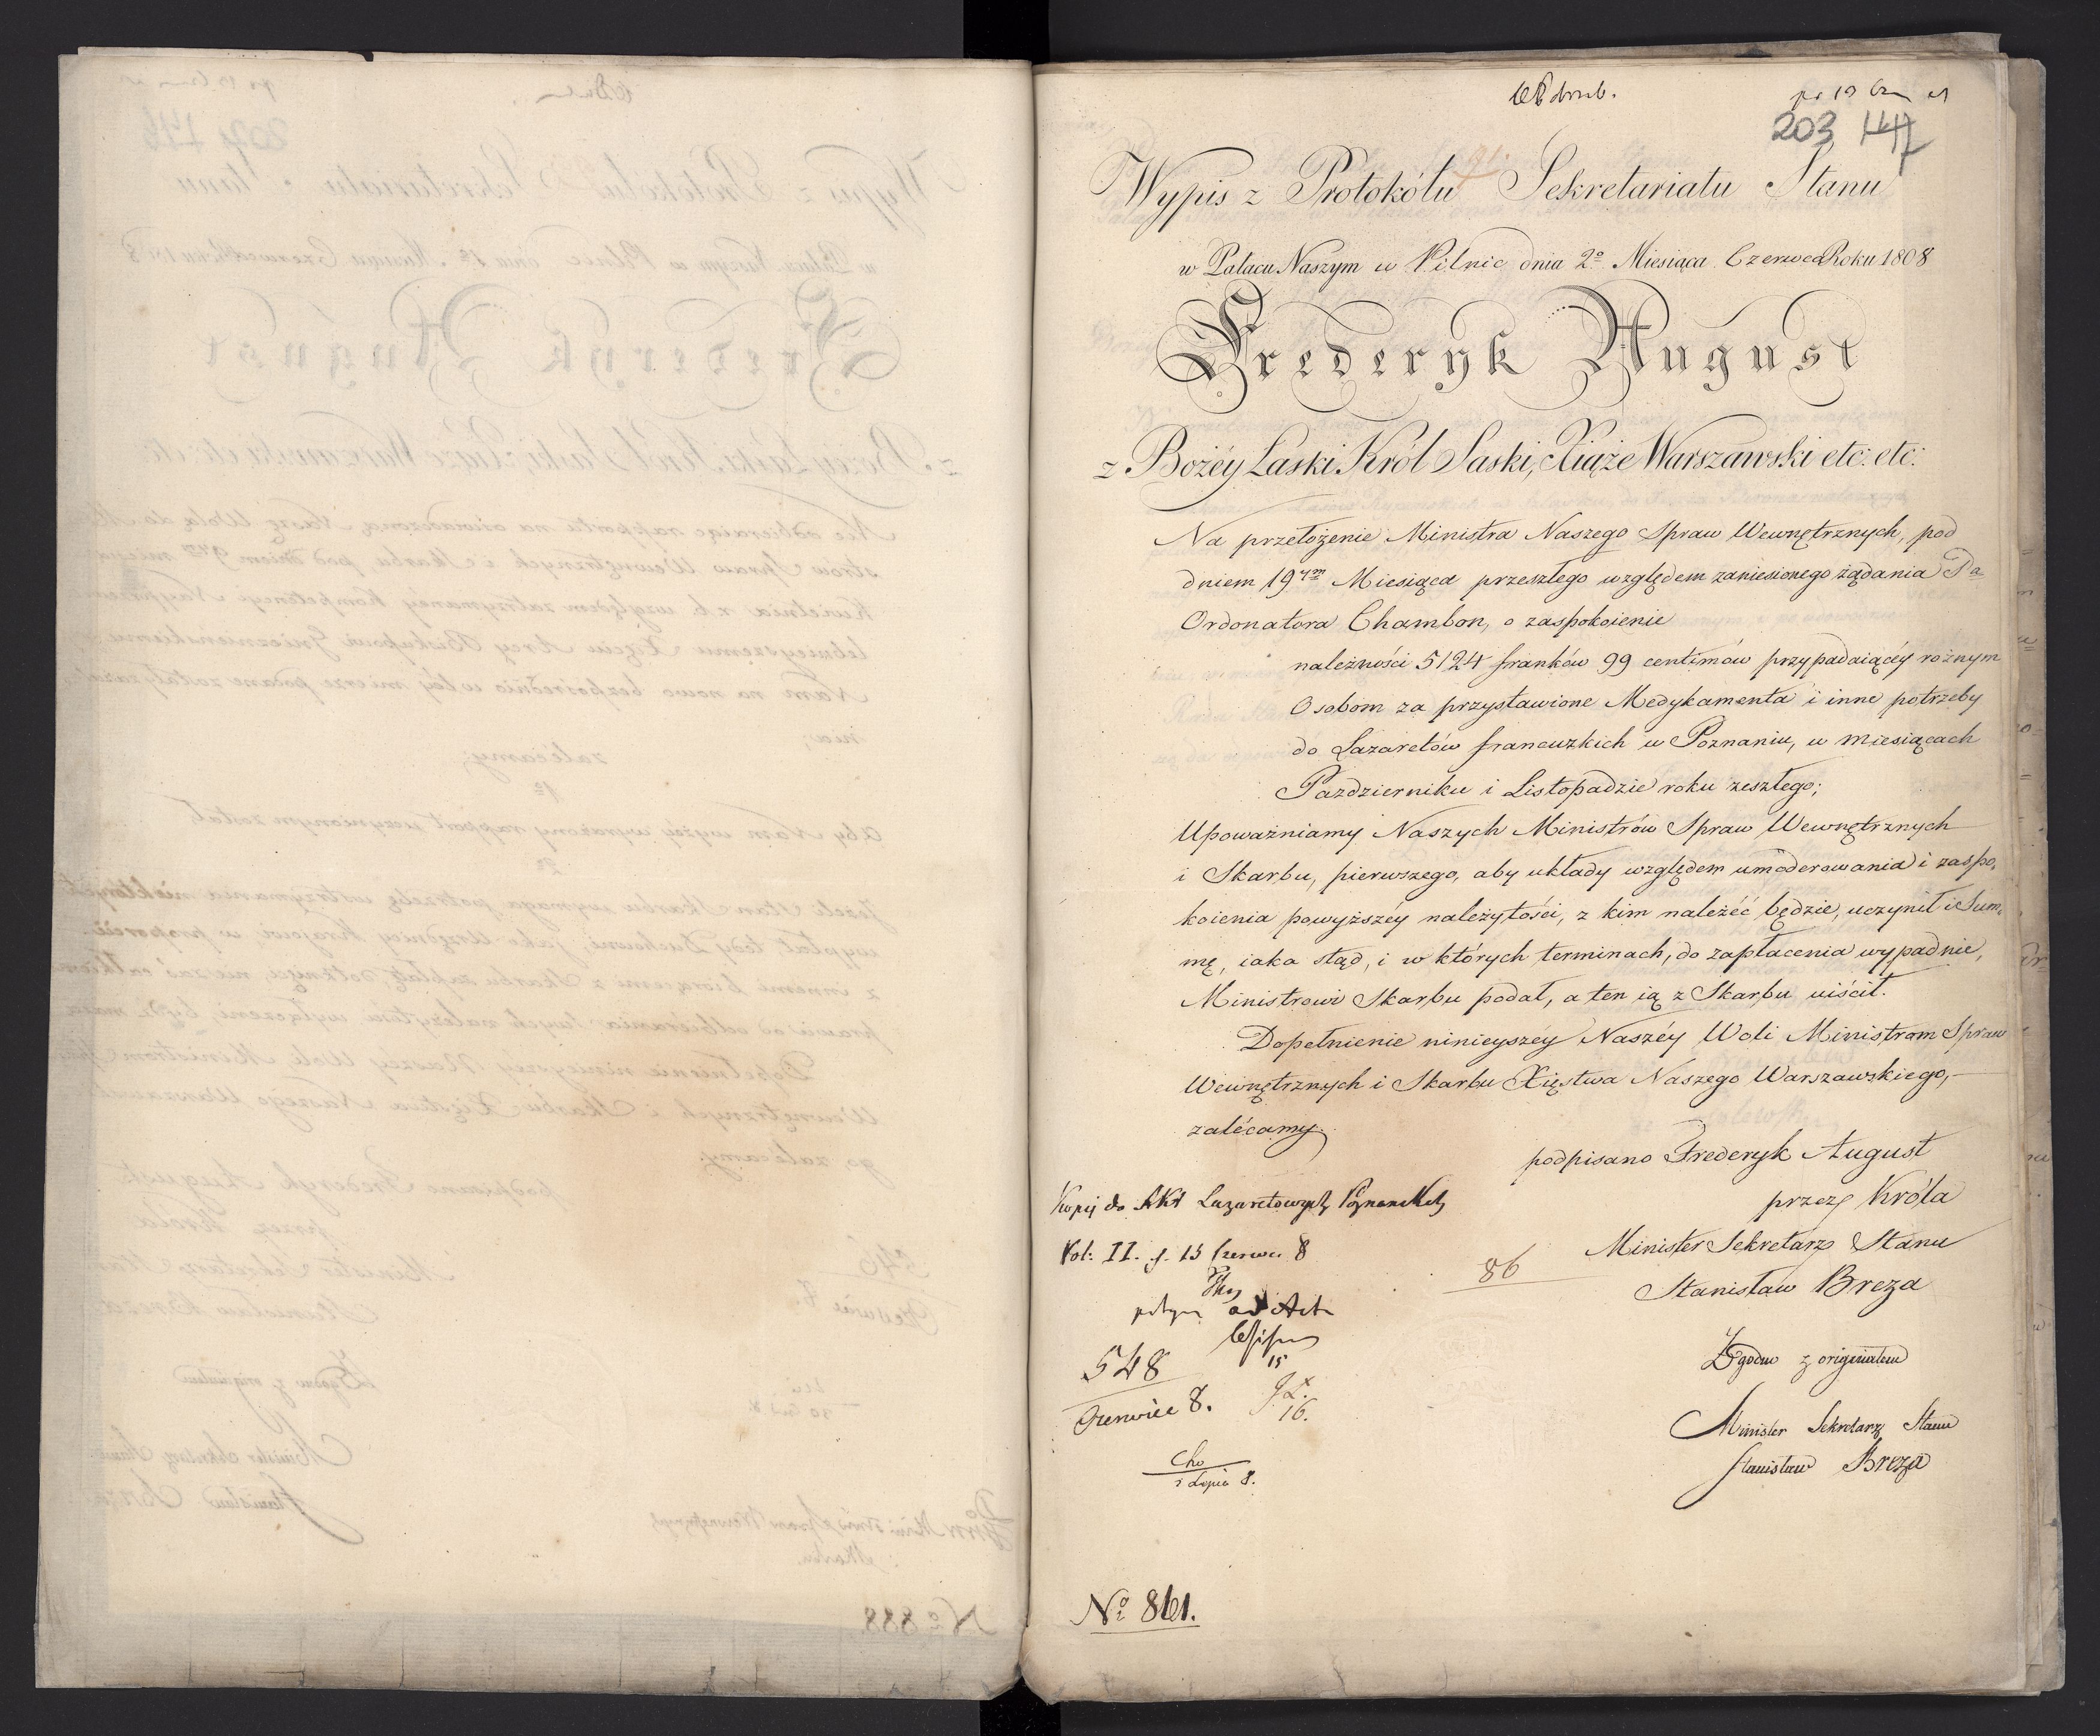 203 147
Wypis z Protokółu Sekretariatu Stanu
w Pałacu Naszym w Pilnic dnia 2º Miesiąca Czerwca Roku 1808
Frederyk August
z Bożéy Łaski Król Saski, Xiąże Warszawski etc: etc:
Na przełożenie Ministra Naszego Spraw Wewnętrznych, pod
dniem 19ym Miesiąca przeszłego względem zaniesionego żądania Pa
Ordonatora Chambon, o zaspokoienie
należności 5124 franków 99 centimów przypadaiącéy rożnym
Osobom za przystawione Medykamenta i inne potrzeby
do Lazaretów francuzkich w Poznaniu, w miesiącach
Pazdzierniku i Listopadzie roku zeszłego;
Upoważniamy Naszych Ministrów Spraw Wewnętrznych
i Skarbu, pierwszego, aby układy względem umoderowania i zaspo,
koienia powyższéy należytości, z kim należéć będzie, uczynił i Sum,
mę, iaka stąd, i w których terminach, do zapłacenia wypadnie,
Ministrowi Skarbu podał, a ten ią z Skarbu uiścił.
Dopełnienie ninieyszéy Naszéy Woli Ministrom Spraw
Wewnętrznych i Skarbu Xięstwa Naszego Warszawskiego,
zalécamy.
podpisano Frederyk August
przez Króla
Minister Sekretarz Stanu
Stanisław Breza
Kopij do Akt Lazaretowych Poznanskich
Vol: II. d. 15 Czerwca 8
86
ad Acta
548
15
Czerwiec 8.
16.
Zgodno z originałem
Minister Sekretarz Stanu
Stanisław Breza
Nº 861.